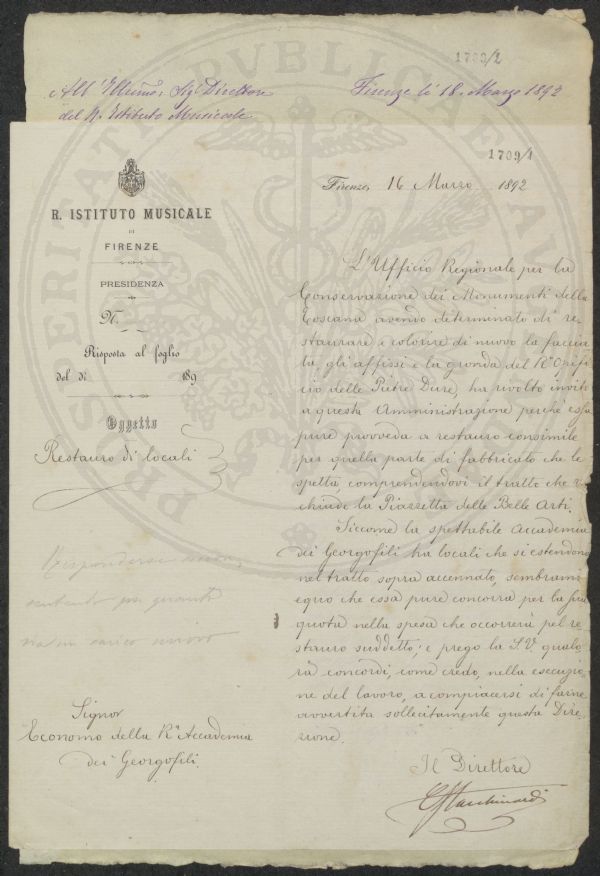 1709/2
All' Illmo: Sig Direttore
del R. Istituto Musicale
Firenze li 18. Marzo 1892
1709/1
R. ISTITUTO MUSICALE
DI
FIRENZE
PRESIDENZA
N.
Risposta al foglio
del dì 189
Oggetto
Restauro di locali
Firenze, 16 Marzo 1892
L'Ufficio Regionale per la
Conservazione dei Monumenti della
Toscana avendo determinato di re-
staurare e colorire di nuovo la faccia-
ta, gli affissi e la gronda del Ro Opifi-
cio delle Pietre Dure, ha rivolto invito
a questa Amministrazione perchè essa
pure provveda a restauro consimile
per quella parte di fabbricato che le
spetta, comprendendovi il tratto che
chiude la Piazzetta delle Belle Arti.
Siccome la spettabile Accademia
dei Georgofili ha locali che si estendono
nel tratto sopra accennato, sembrami
equo che essa pure concorra per la sua
quota nella spesa che occorrerà pel re-
stauro suddetto; e prego la S.V. qualo-
ra concordi, come credo, nella esecuzio-
ne del lavoro, a compiacersi di farne
avvertita sollecitamente questa Dire-
zione.
Il Direttore
Rispondersi
Signor
Economo della Ra Accademia
dei Georgofili.
PROSPERITATI PUBLICAE AU